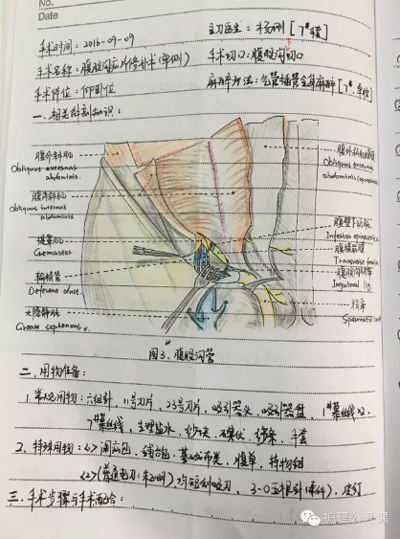 No.
Date
主刀医生：杨刚 [7#手套]
手术时间：2016-09-09
手术切口：腹股沟切口
手术名称：腹股沟疝片修补术(单侧)
手术体位：仰卧位
麻醉方法：气管插管全身麻醉 [7#
一、相关解剖知识：
腹外斜肌
Obliquus externus abdominis.
腹外斜肌腱膜
Obliquus externus abdominis
腹内斜肌
Obliquus internus abdominus
腹壁下动脉
Inferior epigastric
提睾肌
Cremaster
腹横筋膜
Transverse fascia
输精管
Deferent duct.
腹股沟韧带
Inguinal lig.
大隐静脉
Grease saphenous v.
精索
Spermatic
图3. 腹股沟管
二、用物准备：
1. 常规用物：六组针，11号刀片，23号刀片，吸引器头，吸引器盘，1#慕丝线
7#慕丝线，生理盐水，纱块，碘伏，手套
2. 特殊用物：<1> 阑尾包，铺台包，基础布类，腹单，持物钳
<2>
3-0
三、手术步骤与手术配合：
护理公开课